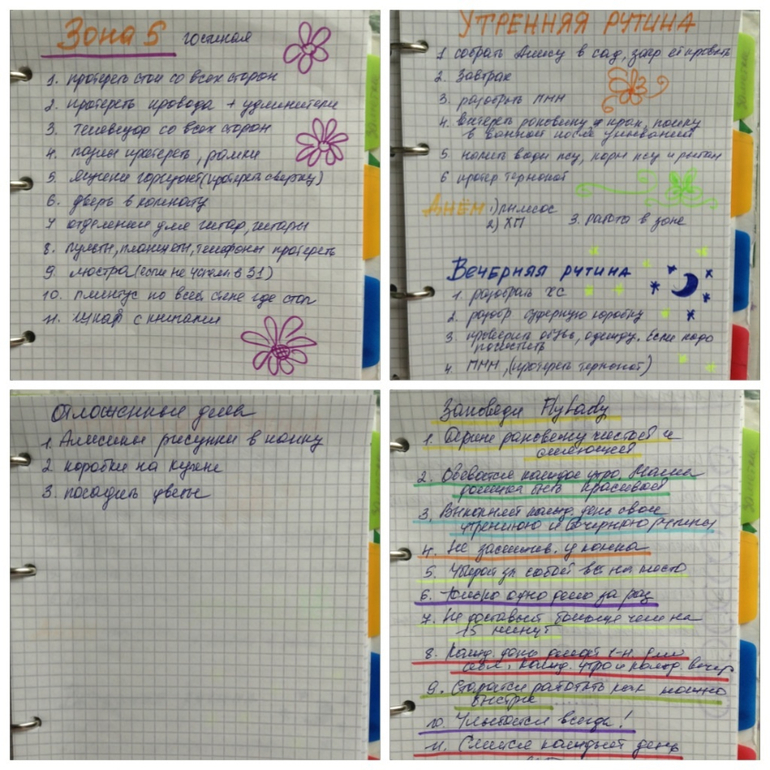 Зона 5 гостиная
1. протереть стол со всех сторон
2. протереть провода + удлинители
3. телевизор со всех сторон
4. пазлы протереть, рамки
5. ячейки (протереть сверху)
6. дверь в комнату
7 отделение для гитар, гитары
8. пульты, планшеты, телефоны протереть
9. люстра (если не чистил. в З1)
10. плинтус по всей стене где стол
11. шкаф с книгами
УТРЕННЯЯ РУТИНА
1 собрать Алису в сад, запр её кровать
2. Завтрак
3. разобрать ПММ
4. Вытереть раковину и кран, полку
в ванной после умываний
5. налить воды псу, корм псу и рыбам
6 протер термопот
ДНЁМ 1) пылесос
2) ХП
3. работа в зоне
ВЕЧЕРНЯЯ РУТИНА
1. разобрать ХС
2. разобр обувную коробку
3 проверить обувь, одежду. Если надо
почистить
4. ПММ, (протереть термопот)
Отложенные дела
1. Алисины рисунки в папку
2 коробки на кухне
3. посадить цветы
Заповеди FlyLady
1. Держи раковину чистой и
сияющей
2. Одевайся каждое утро.
красивой
3. Выполняй кажд. день свои
утреннюю и вечернюю рутины
4. Не у компа
5. Убирай за собой всё на место
6. Только одно дело за раз
7. Не доставай больше чем на
15 минут
8. Кажд. день делай ч-н. для
себя. Кажд. утро и кажд. вечер
9. Старайся работать как можно
быстрее
10. Улыбайся всегда!
11. Смейся каждый день